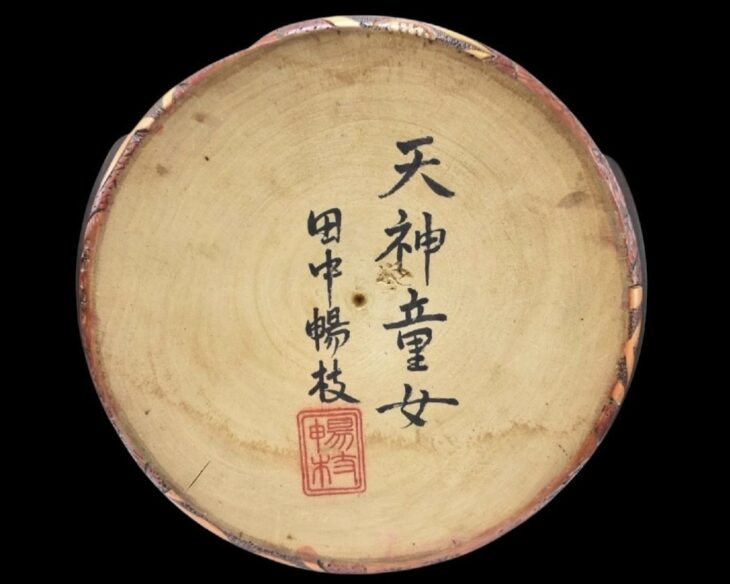 天神童女
田中暢枝
暢枝